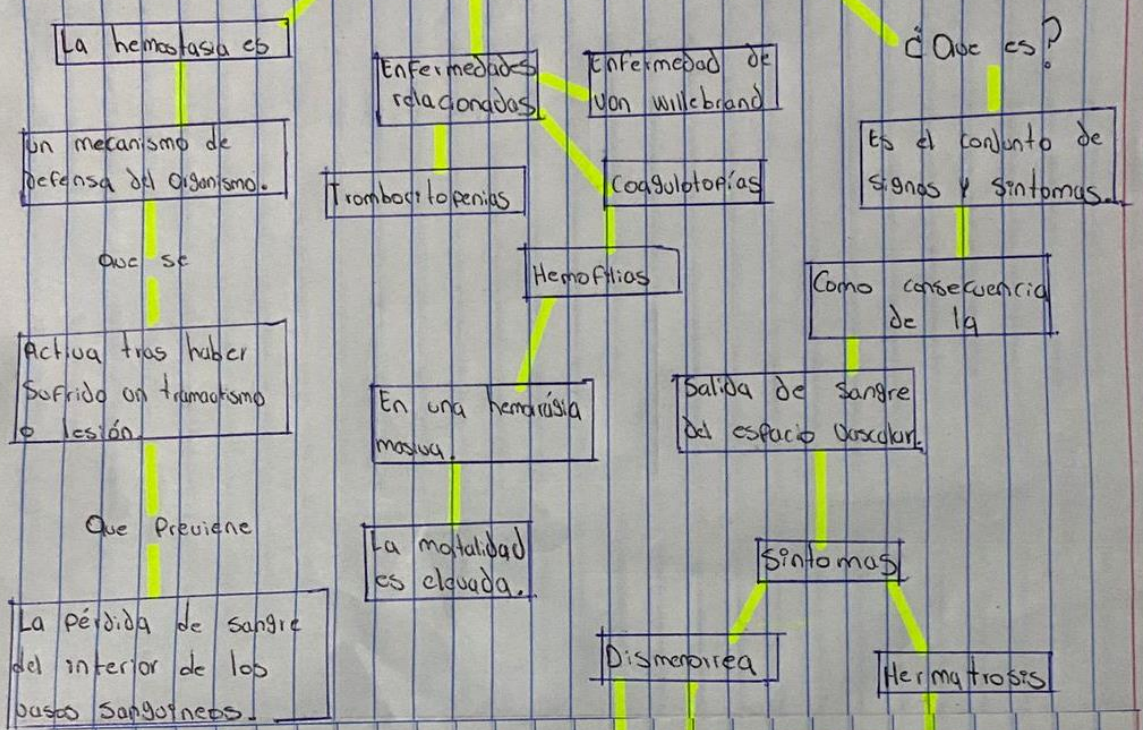 La hemostasia es
Un mecanismo de
Defensa del Organismo.
Que se
Activa tras haber
Sufrido un tramaotismo
o lesión
Que Previene
La pérdida de sangre
del interior de los
basos Sanguineos.
Enfermedades
relacionadas
Enfermedad de
von willebrand
Trombocitopenias
Coagulotopías
Hemofilias
En una hemorrásia
masiva.
La mortalidad
es elevada.
¿Que es?
Es el conjunto de
signos y sintomas.
Como consecuencia
de la
Salida de sangre
Del espacio Vascular.
Sintomas
Dismenorrea
Hermatrosis